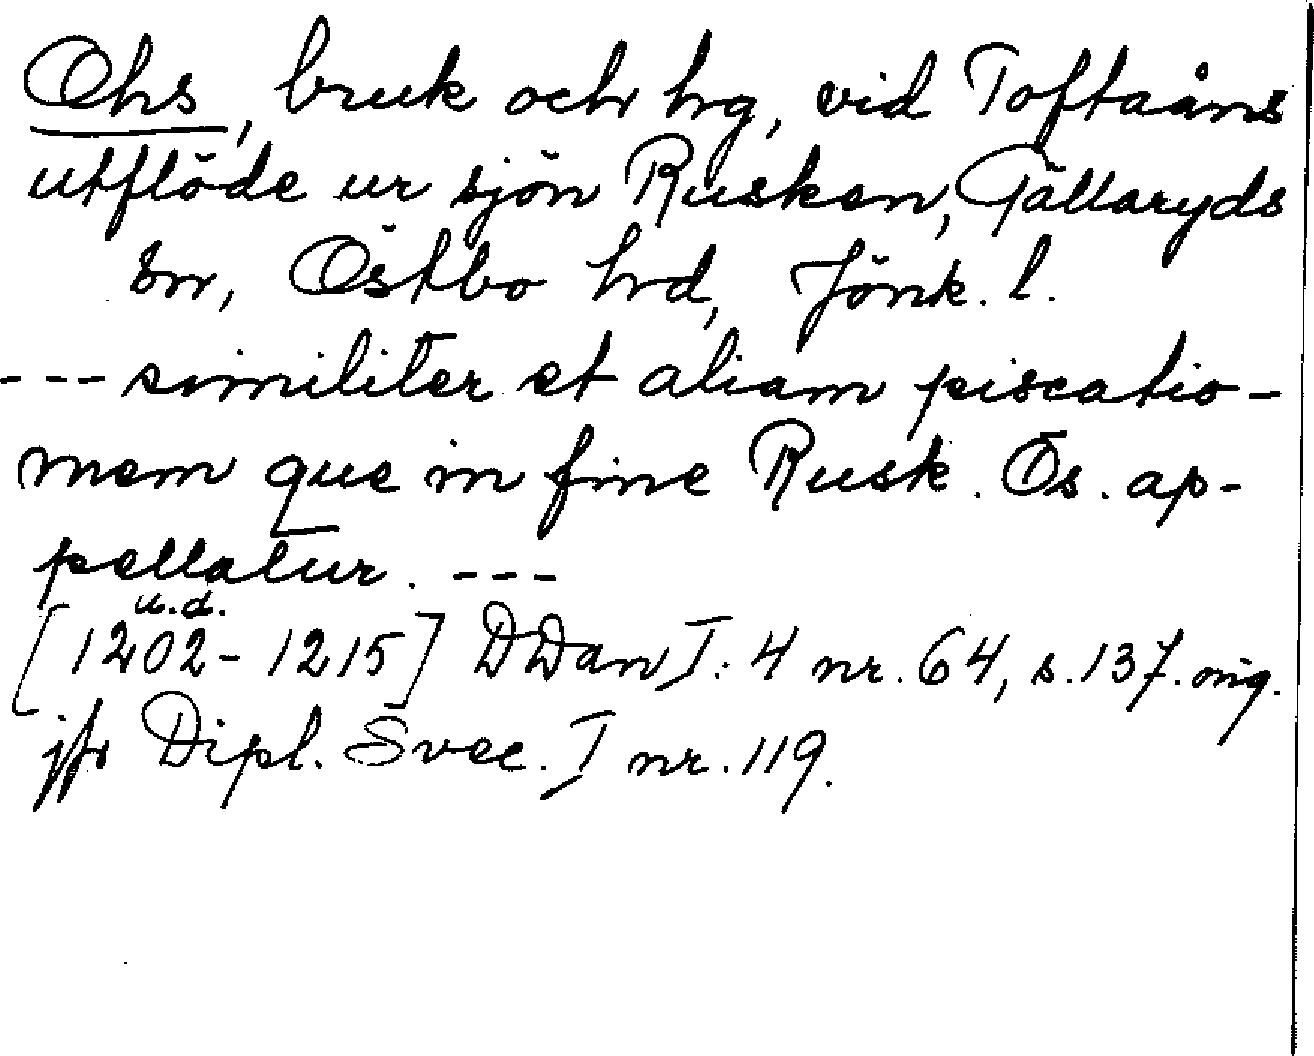 Ohs, bruk och hg, vid Toftaåns
utflöde ur sjön Rusken, Gällaryds
sn, Östbo hd, Jönk. l.
--- similiter et aliam piscatio-
nem que in fine Rusk. Os. ap-
pellatur. ---
u.d.
[1202-1215] DDan I: 4 nr. 64, s. 137. orig.
jfr Dipl. Svec. I nr. 119.